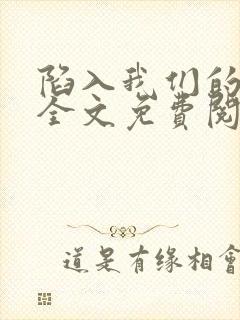 陷入我们的
全文免费阅
道是有缘相會